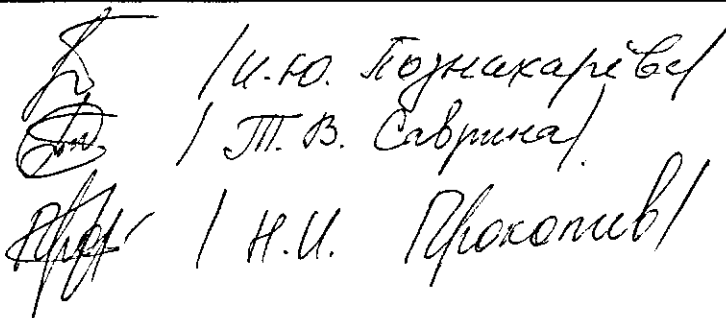 /И.Ю. Познахарёва/
/ Т.В. Саврина/
/ Н.И. Прокопив/